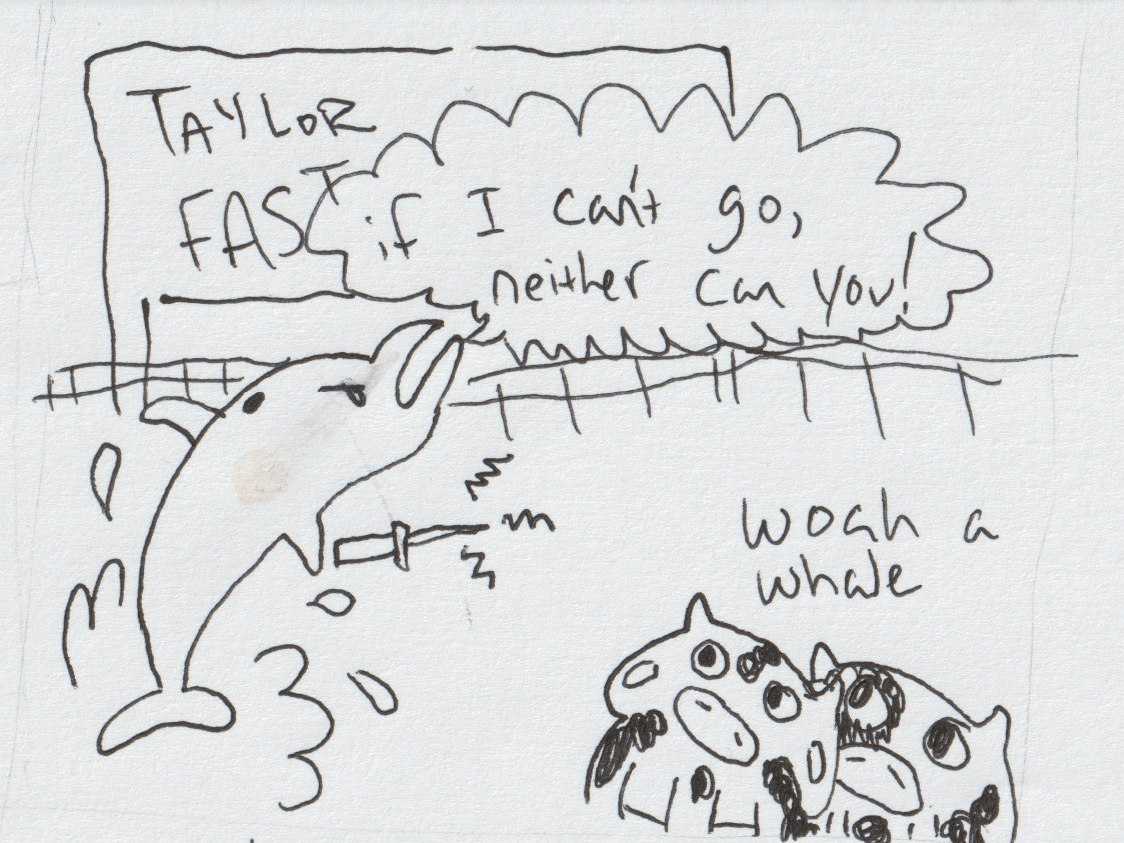 TAYLOR
FAST
if I can't go,
neither can you!
woah a
whale